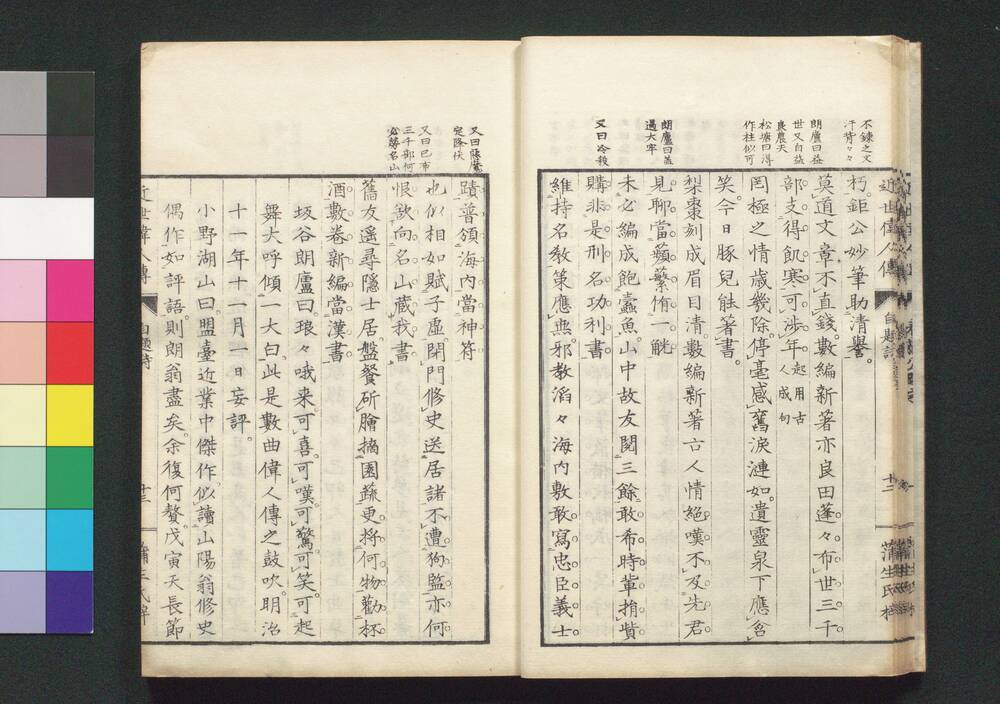 不錬之文
汗背々々
朗廬曰益
世又自益
良農夫
松塘曰得
作柱似可
朗廬曰益
過大牢
又曰冷殺
近世偉人傳
自題詩
十二
蒲生氏梓
朽。鉅公妙筆助清譽。
莫道文章不直錢。數編新著亦良田。蓬々布世三千
部。支得飢寒可渉年。起用古人成句
罔極之情歳幾除。停毫感舊淚漣如。遺靈泉下應含
笑。今日豚兒能著書。
梨棗刻成眉目清。數編新著古人情。絕嘆不及先君
見。聊當蘋蘩侑一觥。
未必編成飽蠹魚。山中故友閱三餘。敢希時輩捐貲
購。非是刑名功利書。
維持名敎策應無。邪教滔々海內敷。敢寫忠臣義士
又曰
定降伏
又曰已布
三千部何
必藏名山
蹟。普頒海內當神符。
也似相如賦子虛。閉門修史送居諸。不遭狗監亦何
恨。欲向名山藏我書。
舊友遙尋隱士居。盤餐斫膾摘園蔬。更將何物勸杯
酒。數卷新編當漢書。
坂谷朗廬曰。琅々哦来。可喜。可嘆。可驚。可笑。可起
舞大呼傾一大白。此是數曲偉人傳之鼓吹。明治
十一年十一月一日妄評。
小野湖山曰。盟臺近業中傑作。似讀山陽翁修史
偶作。如評語則朗翁盡矣。余復何贅。戊寅天長節
近世偉人傳
自題詩
十三
蒲生氏梓